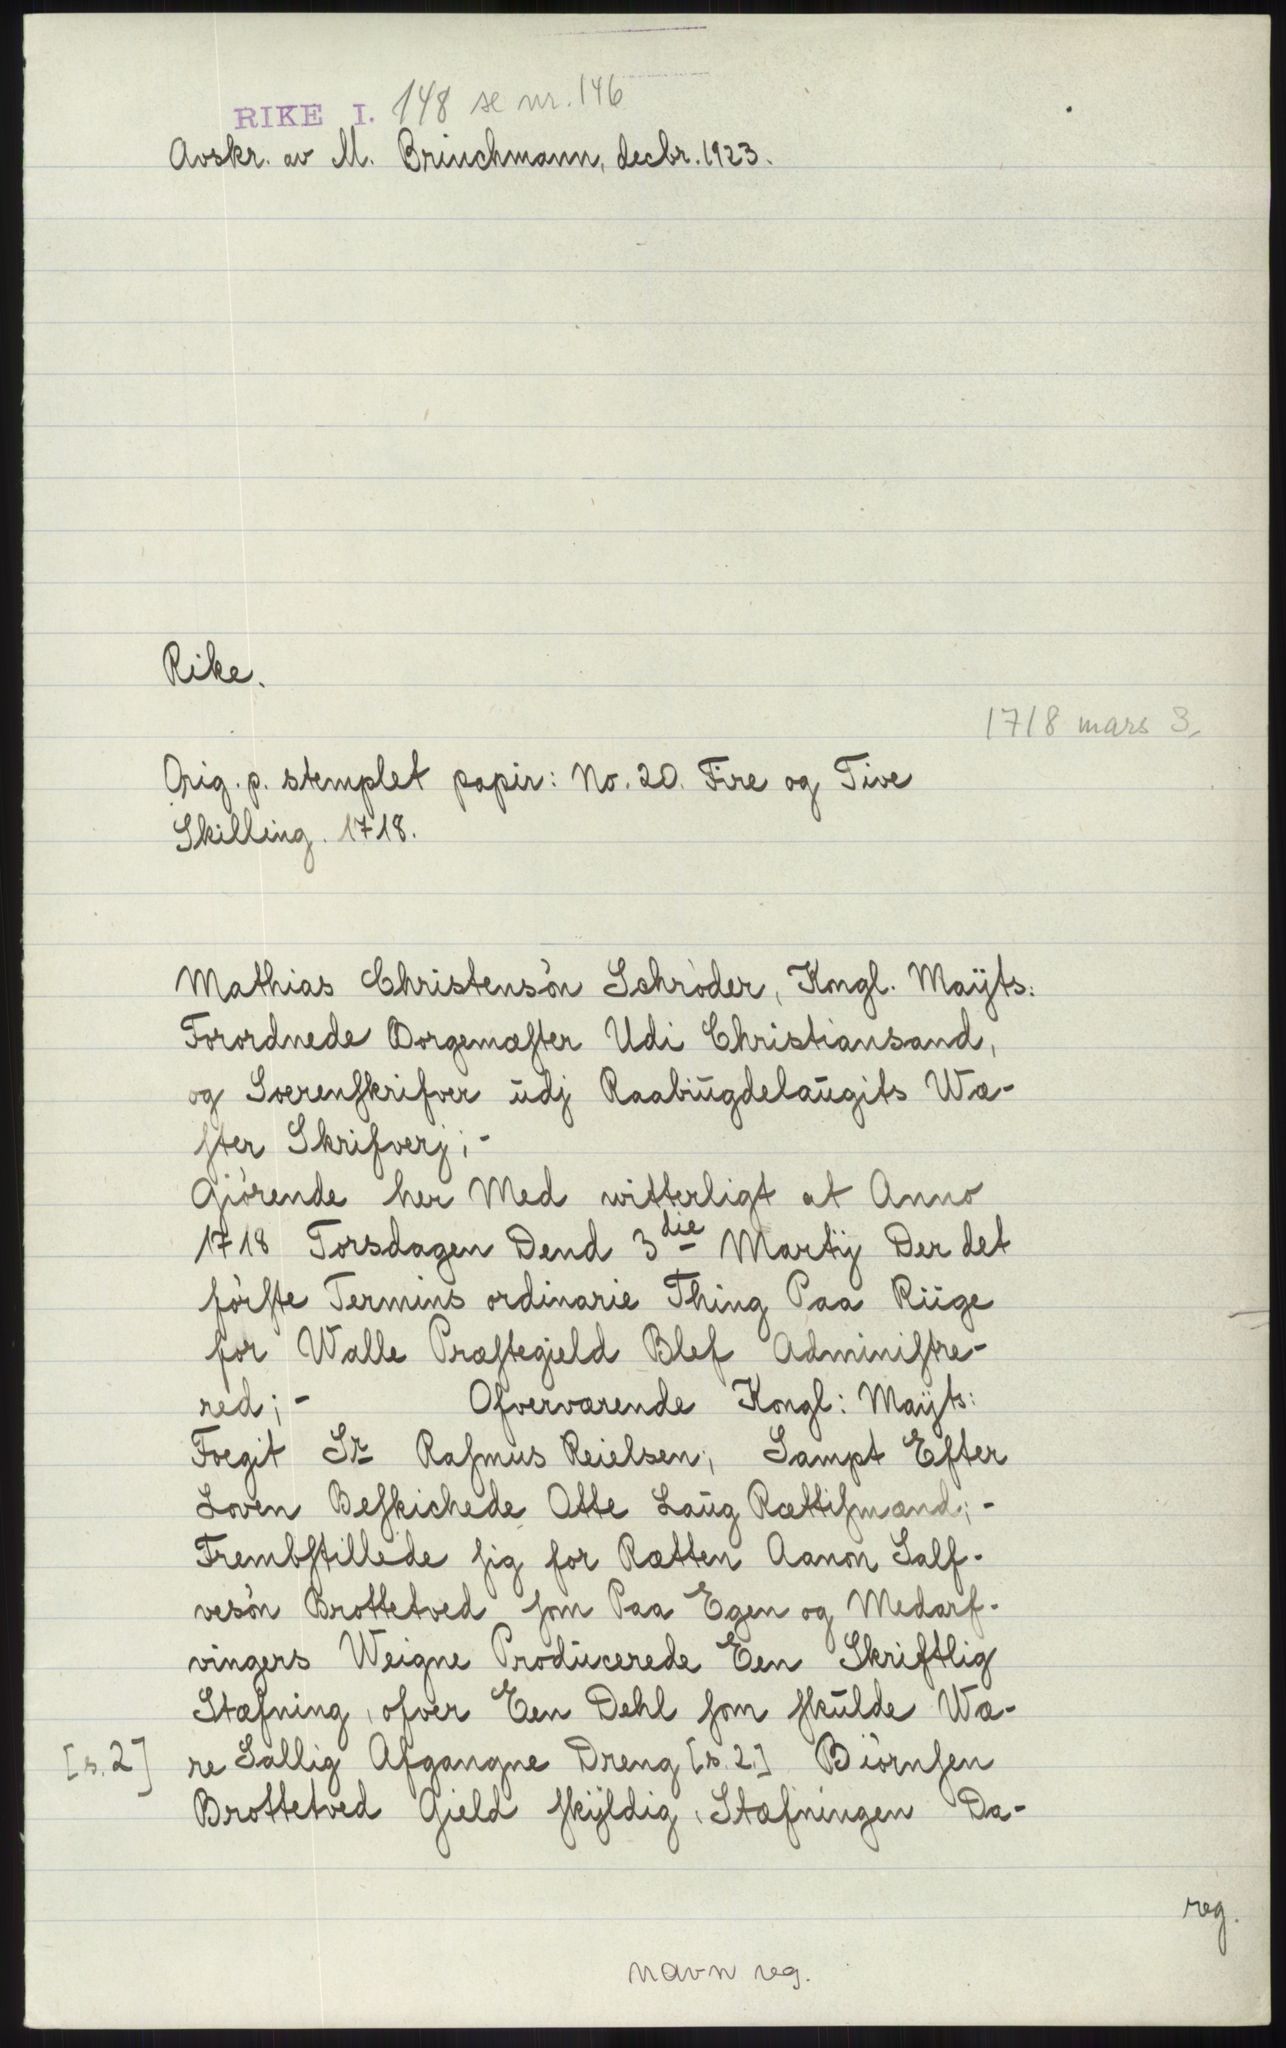 RIKE I. 148 se nr. 146
Avskr. av M. Brinchmann, decbr. 1923.
Rike.
1718 mars 3.
Orig. p. stemplet papir: No. 20. Fire og Tive
Skilling. 1718.
Mathias Christensön Schröder, Kongl. Maÿts:
Forordnede Borgemæſter Udi Christiansand,
og Soerenſkrifver udj Raabŭgdelaŭgits Wæ-
ſter Skrifverj; -
Giörende her Med witterligt at Anno
1718 Torsdagen Dend 3die Martÿ Der det
förſte Termins ordinarie Thing Paa Riige
for Walle Præſtegield Blef Adminiſtre-
red; - Ofverværende Kongl: Maÿts:
Foegit Sr Raſmus Reielsen; Sampt Efter
Loven Beſkichede Otte Laŭg Rættiſmænd; -
Frembſtillede ſig for Rætten Aanon Salf-
vesön Brottetved ſom Paa Egen og Medarf-
vingers Weigne Prodŭcerede Een Skriftlig
Stæfning, ofver Een Dehl ſom ſkŭlde Wæ-
[s. 2] re Sallig Afgangne Dreng [s. 2.] Biörnſen
Brottetved Gield ſkÿldig, Stæfningen Da-
reg.
navn reg.